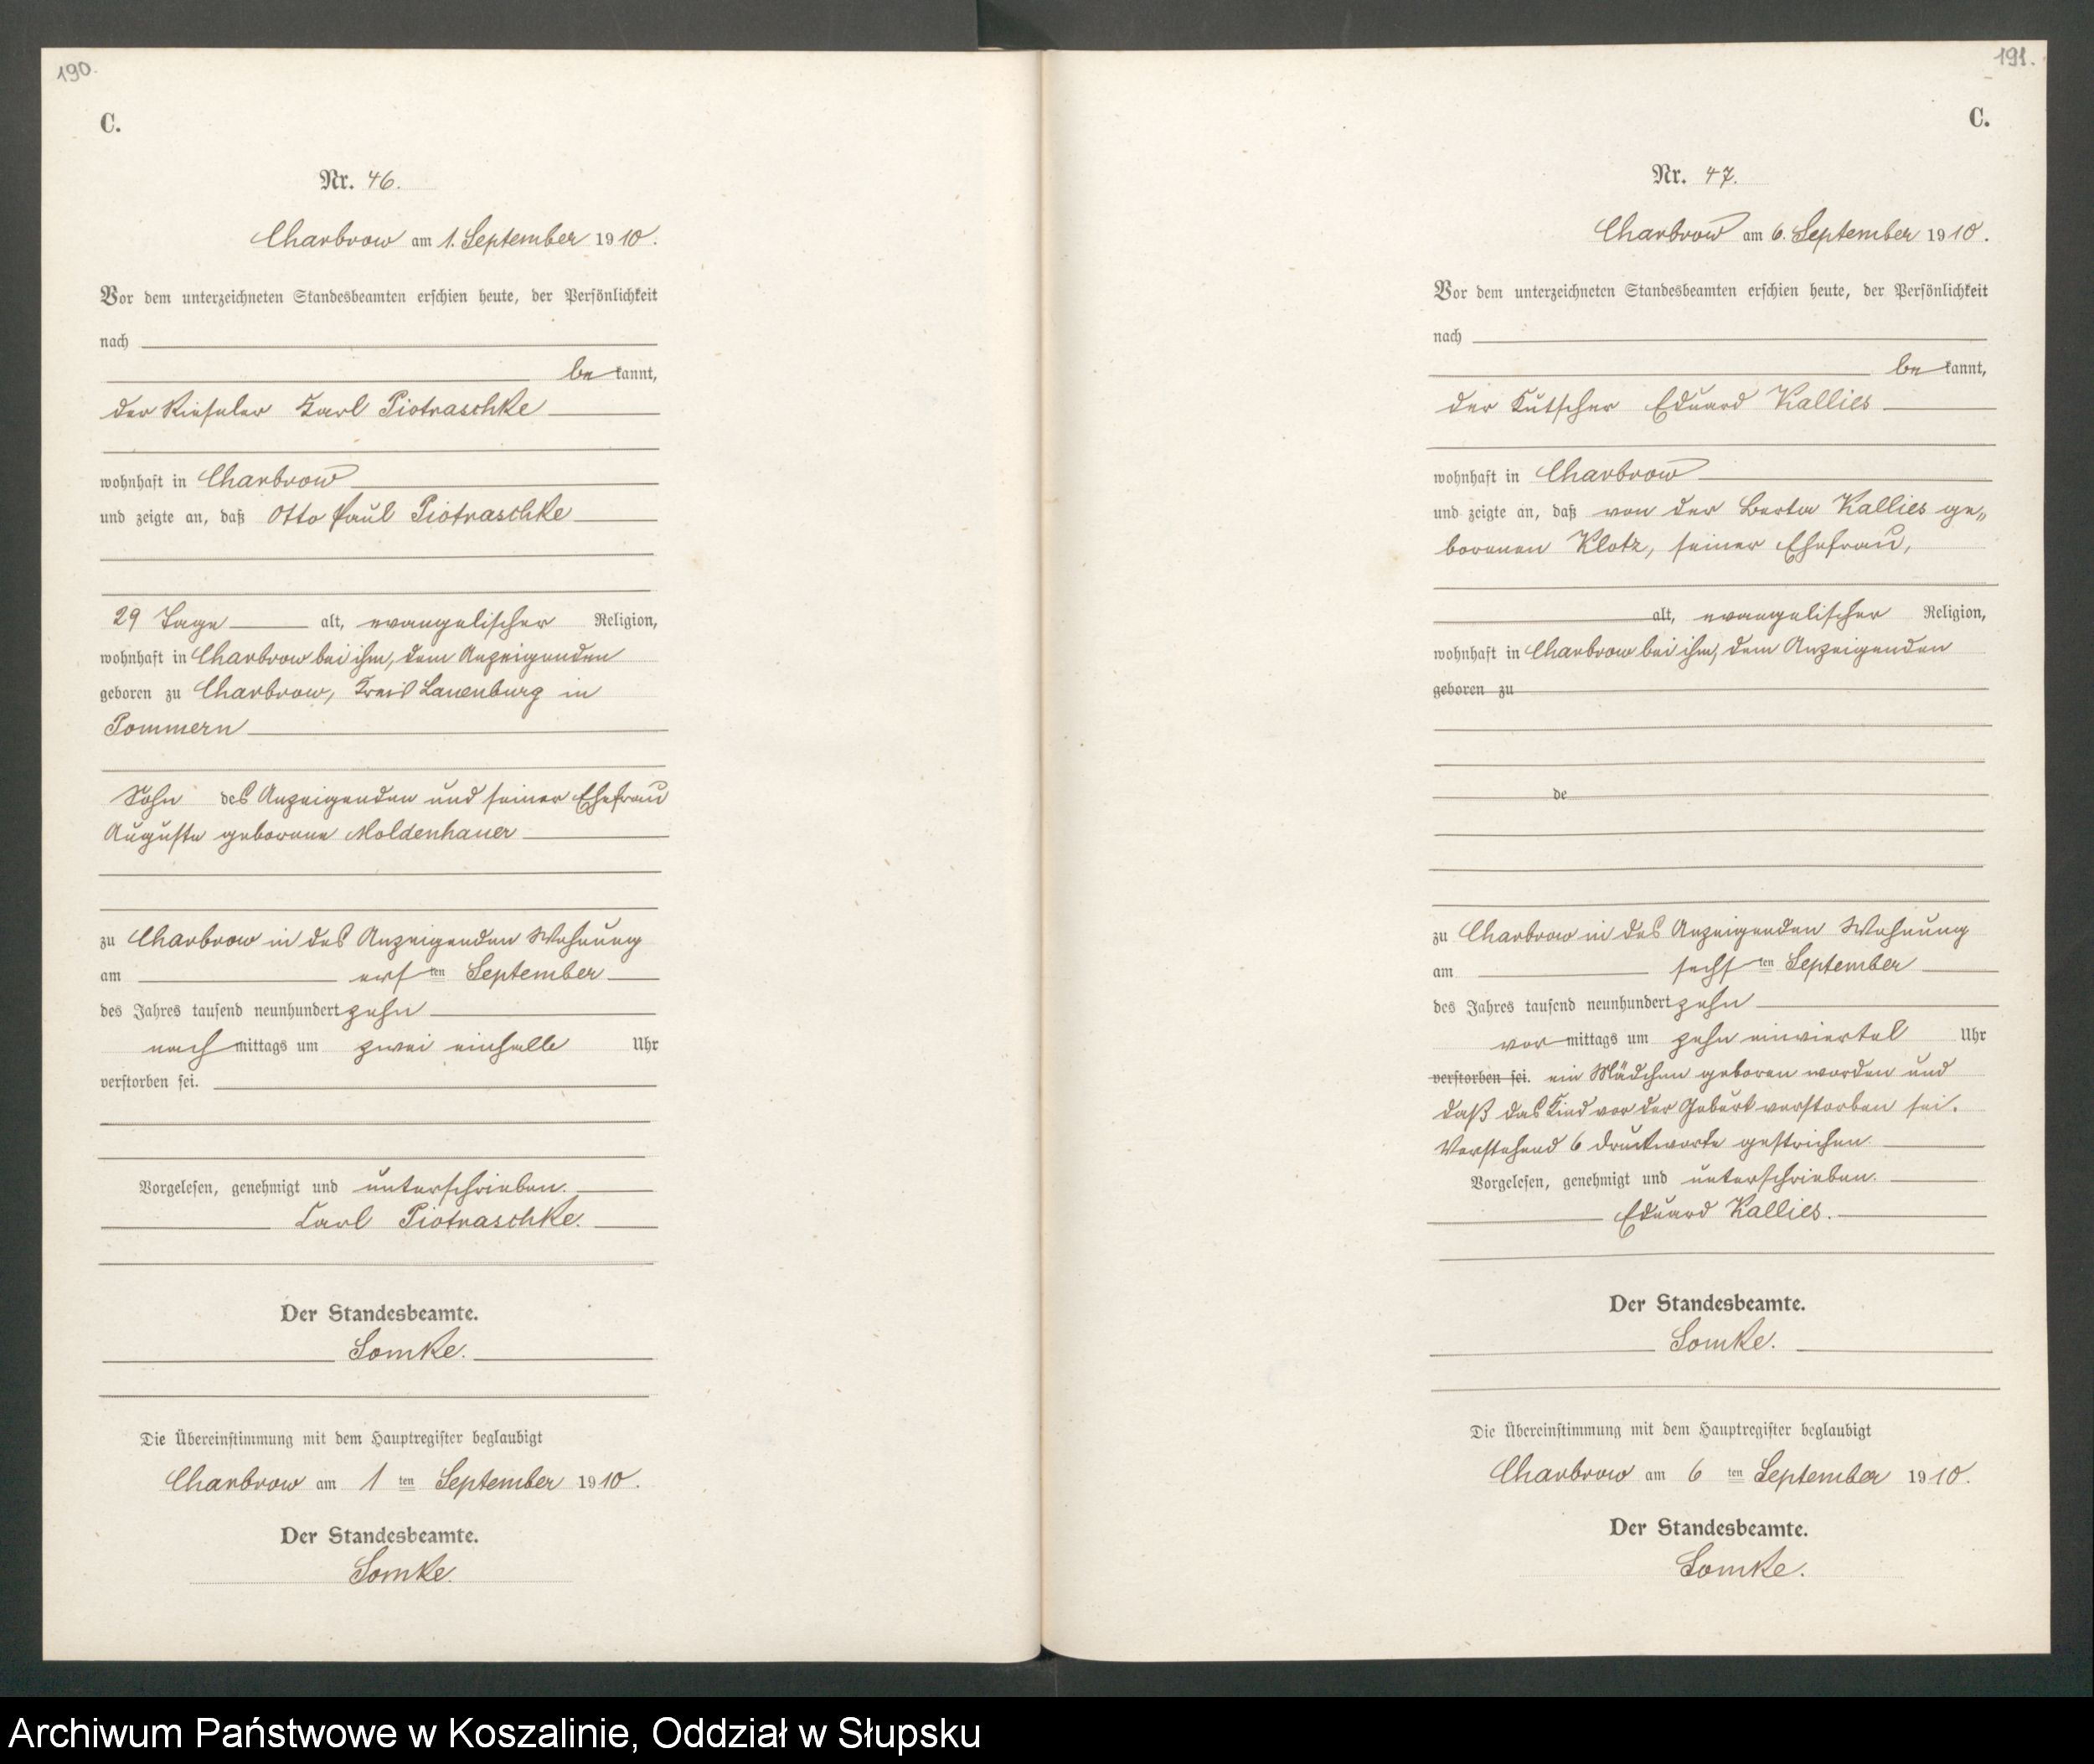 190.
C.
Nr. 46.
Charbrow am 1. September 1910.
Vor dem unterzeichneten Standesbeamten erschien heute, der Persönlichkeit
nach
be kannt,
der Rieseler Karl Piotraschke
wohnhaft in Charbrow
und zeigte an, daß Otto Paul Piotraschke
29 Tage alt, evangelischer Religion,
wohnhaft in Charbrow bei ihm, dem Anzeigenden
geboren zu Charbrow, Kreis Lauenburg in
Pommern
Sohn des Anzeigenden und seiner Ehefrau
Auguste geborene Moldenhauer
zu Charbrow in des Anzeigenden Wohnung
am ersten September
des Jahres tausend neunhundert zehn
nach mittags um zwei einhalb Uhr
verstorben sei.
Vorgelesen, genehmigt und unterschrieben.
Karl Piotraschke.
Der Standesbeamte.
Somke.
Die Übereinstimmung mit dem Hauptregister beglaubigt
Charbrow am 1 ten September 1910.
Der Standesbeamte.
Somke.
191.
C.
Nr. 47.
Charbrow am 6. September 1910.
Vor dem unterzeichneten Standesbeamten erschien heute, der Persönlichkeit
nach
be kannt,
der Kutscher Eduard Kallies
wohnhaft in Charbrow
und zeigte an, daß von der Berta Kallies ge„
borenen Klotz, seiner Ehefrau,
alt, evangelischer Religion,
wohnhaft in Charbrow bei ihm, dem Anzeigenden
geboren zu
de
zu Charbrow in des Anzeigenden Wohnung
am sechsten September
des Jahres tausend neunhundert zehn
vor mittags um zehn einviertel Uhr
verstorben sei. ein Mädchen geboren worden und
daß das Kind vor der Geburt verstorben sei.
Vorstehend 6 Druckworte gestrichen.
Vorgelesen, genehmigt und unterschrieben.
Eduard Kallies.
Der Standesbeamte.
Somke.
Die Übereinstimmung mit dem Hauptregister beglaubigt
Charbrow am 6 ten September 1910.
Der Standesbeamte.
Somke.
Archiwum Państwowe w Koszalinie, Oddział w Słupsku